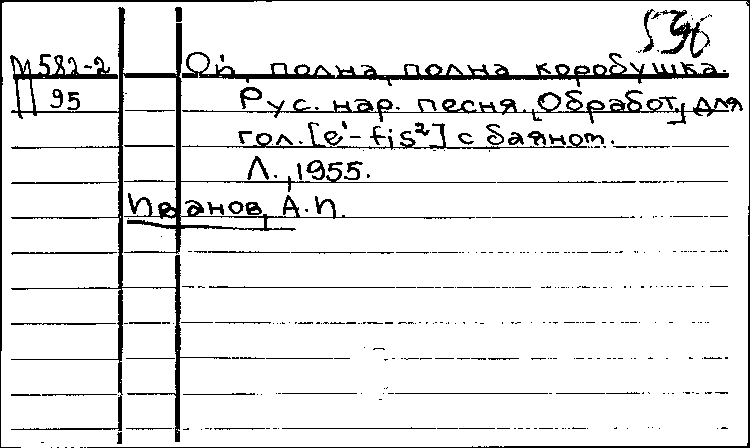 596
М 582-2 Ой, полна, полна коробушка.
П 95 Рус. нар. песня. [Обработ.] для
гол. [e¹-fis²] с баяном.
Л., 1955.
Иванов, А.П.